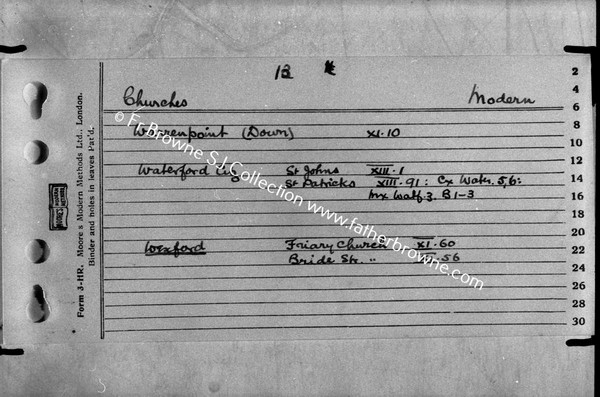 13
Churches Modern
Warrenpoint (Down) XI. 10
Waterford City St Johns XIII. 1
St Patricks XIII. 91 : Cx Water. 5,6:
3. B 1-3
Wexford Friary Church XI. 60
Bride Str. " 56
Form 3-HR. Moore's Modern Methods Ltd., London.
Binder and holes in leaves Pat'd.
2
4
6
8
10
12
14
16
18
20
22
24
26
28
30
© Fr Browne S.J. Collection www.fatherbrowne.com